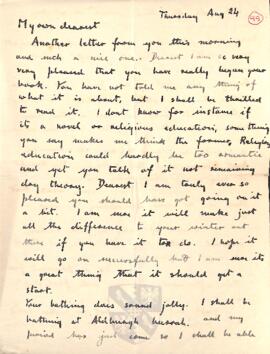 Thursday Aug 24
99
My own dearest
Another letter from you this morning
and such a nice one. Dearest I am so very
very pleased that you have really begun your
book. You have not told me any thing of
what it is about, but I shall be thrilled
to read it. I dont know for instance if
it is a novel or religious education, some thing
you say makes me think the former, Religious
education could hardly be too romantic
and yet you talk of it not remaining
day theory. Dearest I am truly ever so
pleased you should have got going on it
a bit. I am sure it will make just
all the difference to your winter out
there if you have it to do. I hope it
will go on successfully but I am sure its
a great thing that it should get a
start.
Your bathing does sound jolly. I shall be
bathing at Aldeburgh hurrah. and my
period has just come so I shall be able